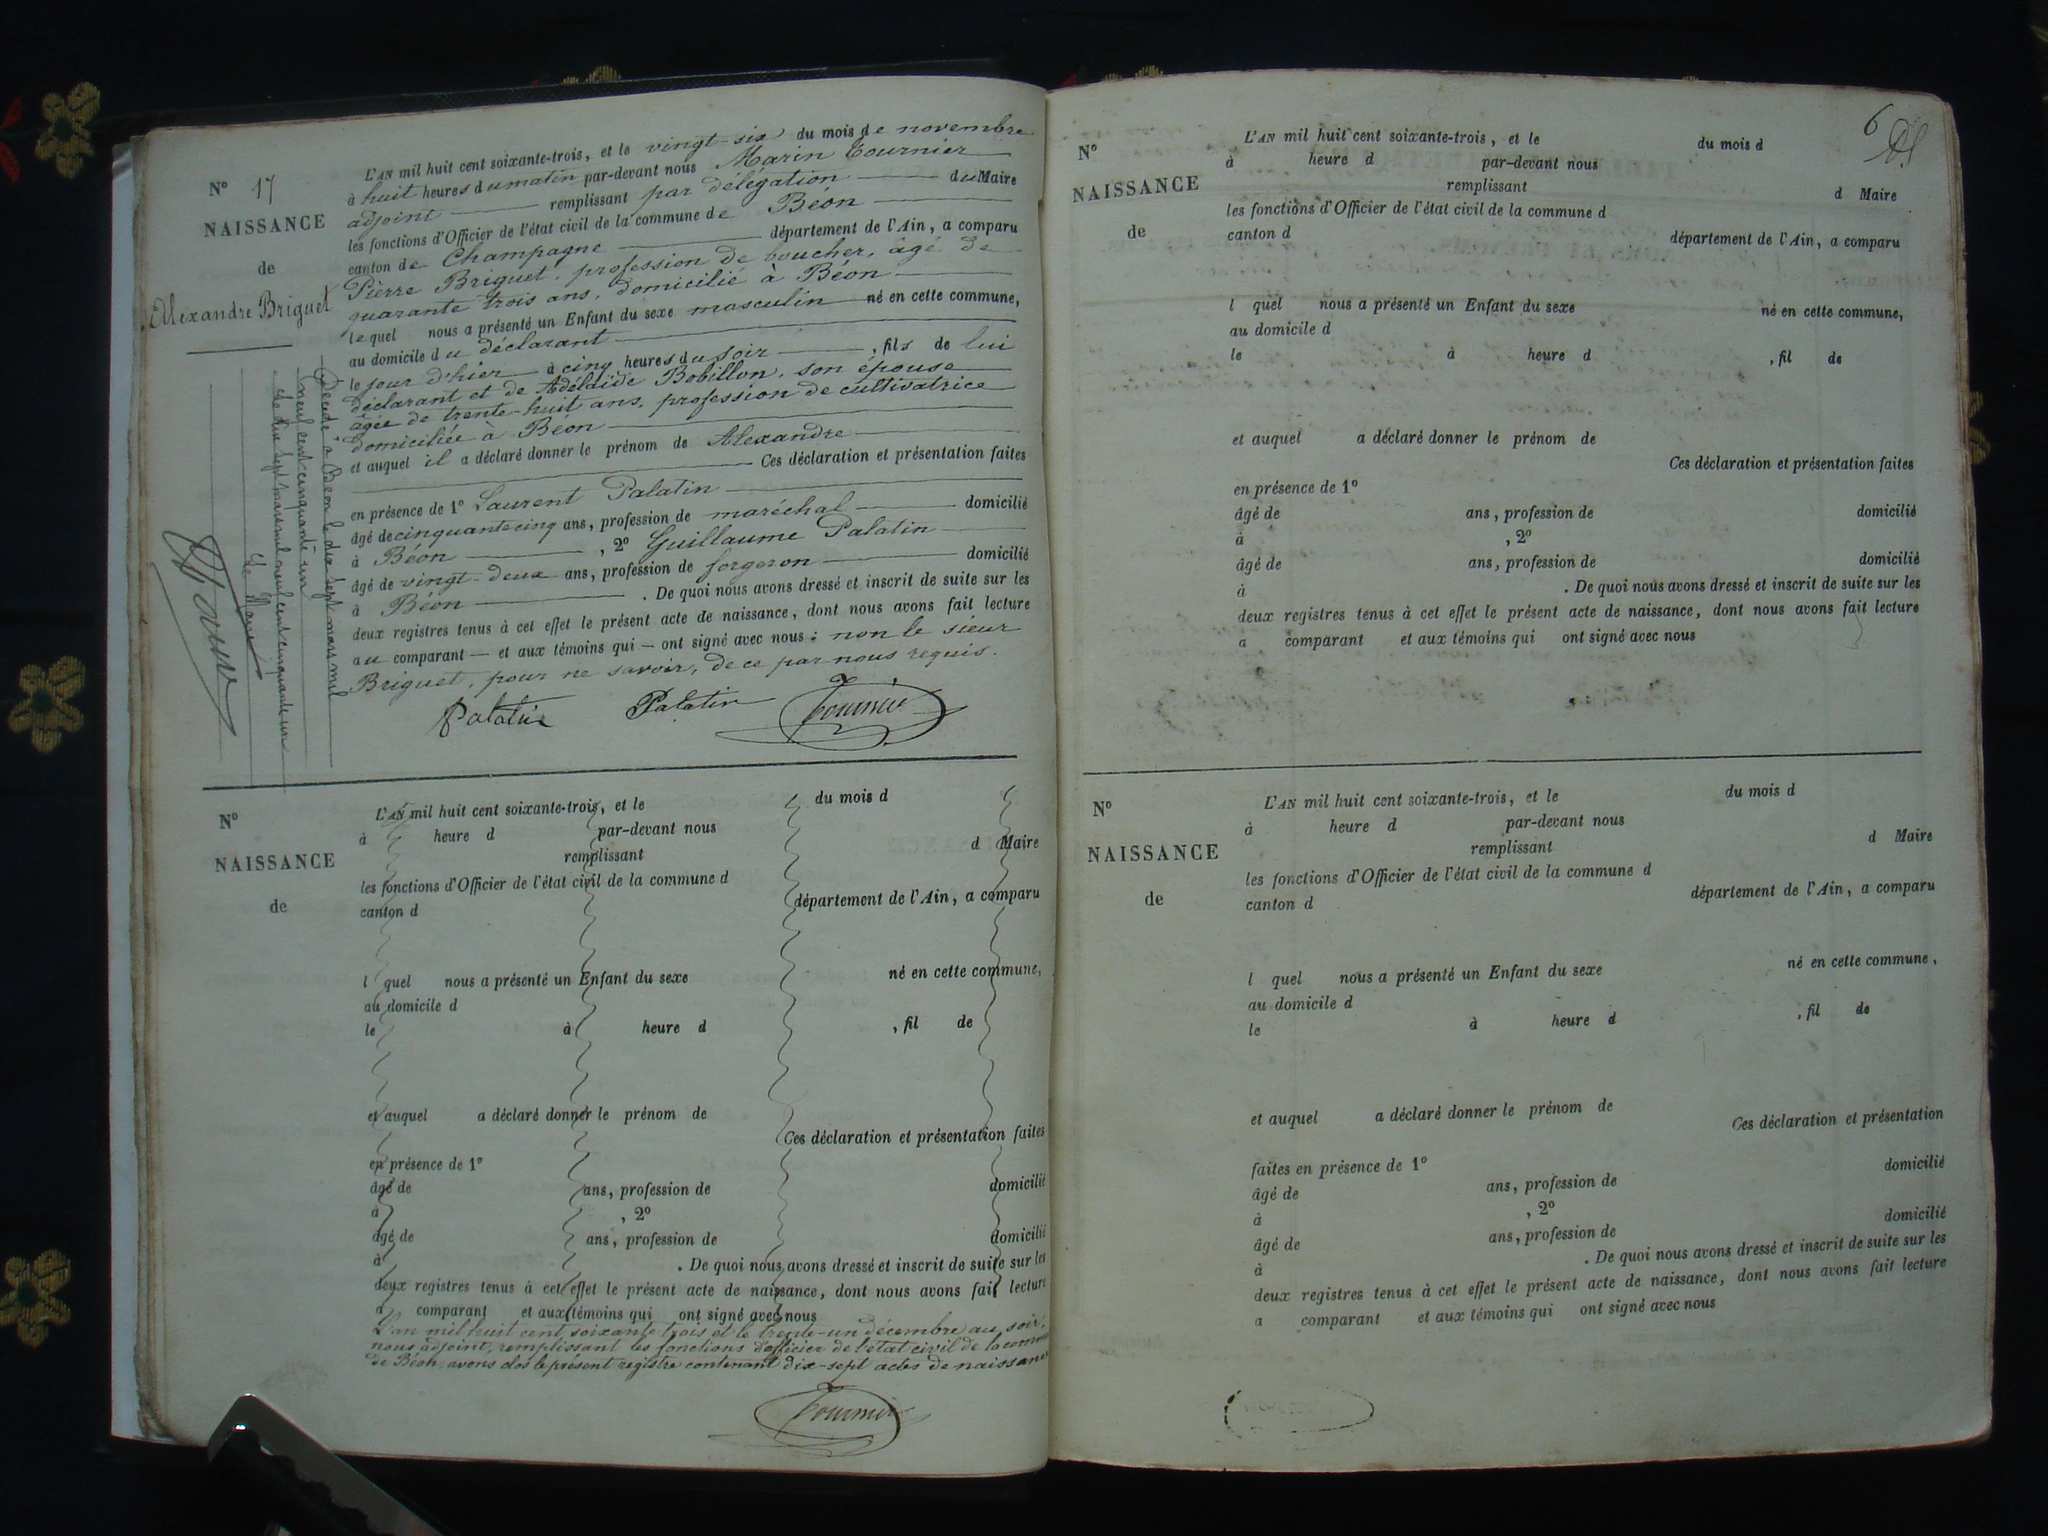 N° 17
NAISSANCE
de
Alexandre Briguet
L'AN mil huit cent soixante-trois, et le vingt-six du mois de novembre
à huit heures du matin par-devant nous Marin Tournier
adjoint remplissant par délégation du Maire
les fonctions d'Officier de l'état civil de la commune de Béon
canton de Champagne département de l'Ain, a comparu
Pierre Briguet, profession de boucher, âgé de
quarante trois ans, domicilié à Béon
lequel nous a présenté un Enfant du sexe masculin né en cette commune,
au domicile du déclarant
le jour d'hier à cinq heures du soir, fils de lui
déclarant et de Adélaïde Bobillon, son épouse
âgée de trente-huit ans, profession de cultivatrice
domiciliée à Béon
et auquel il a déclaré donner le prénom de Alexandre
Ces déclaration et présentation faites
en présence de 1° Laurent Palatin
âgé de cinquante cinq ans, profession de maréchal domicilié
à Béon, 2° Guillaume Palatin
âgé de vingt-deux ans, profession de forgeron domicilié
à Béon. De quoi nous avons dressé et inscrit de suite sur les
deux registres tenus à cet effet le présent acte de naissance, dont nous avons fait lecture
au comparant et aux témoins qui ont signé avec nous; non le sieur
Briguet, pour ne savoir, de ce par nous requis.
Palatin Palatin Tournier
Décédé à Béon le dix sept mars mil
neuf cent cinquante un
Le dix sept mars mil neuf cent cinquante un
Le Maire
N°
NAISSANCE
de
L'AN mil huit cent soixante-trois, et le du mois d
à heure d par-devant nous
remplissant d Maire
les fonctions d'Officier de l'état civil de la commune d
canton d département de l'Ain, a comparu
l quel nous a présenté un Enfant du sexe né en cette commune,
au domicile d
le à heure d , fil de
et auquel a déclaré donner le prénom de
Ces déclaration et présentation faites
en présence de 1°
âgé de ans, profession de domicilié
à , 2°
âgé de ans, profession de domicilié
à . De quoi nous avons dressé et inscrit de suite sur les
deux registres tenus à cet effet le présent acte de naissance, dont nous avons fait lecture
a comparant et aux témoins qui ont signé avec nous
L'an mil huit cent soixante trois et le trente-un décembre au soir,
nous adjoint, remplissant les fonctions d'officier de l'état civil de la commune
de Béon, avons clos le présent registre contenant dix-sept actes de naissance
Tournier
6
N°
NAISSANCE
de
L'AN mil huit cent soixante-trois, et le du mois d
à heure d par-devant nous
remplissant d Maire
les fonctions d'Officier de l'état civil de la commune d
canton d département de l'Ain, a comparu
l quel nous a présenté un Enfant du sexe né en cette commune,
au domicile d
le à heure d , fil de
et auquel a déclaré donner le prénom de
Ces déclaration et présentation faites
en présence de 1°
âgé de ans, profession de domicilié
à , 2°
âgé de ans, profession de domicilié
à . De quoi nous avons dressé et inscrit de suite sur les
deux registres tenus à cet effet le présent acte de naissance, dont nous avons fait lecture
a comparant et aux témoins qui ont signé avec nous
N°
NAISSANCE
de
L'AN mil huit cent soixante-trois, et le du mois d
à heure d par-devant nous
remplissant d Maire
les fonctions d'Officier de l'état civil de la commune d
canton d département de l'Ain, a comparu
l quel nous a présenté un Enfant du sexe né en cette commune,
au domicile d
le à heure d , fil de
et auquel a déclaré donner le prénom de
Ces déclaration et présentation
faites en présence de 1°
âgé de ans, profession de domicilié
à , 2°
âgé de ans, profession de domicilié
à . De quoi nous avons dressé et inscrit de suite sur les
deux registres tenus à cet effet le présent acte de naissance, dont nous avons fait lecture
a comparant et aux témoins qui ont signé avec nous